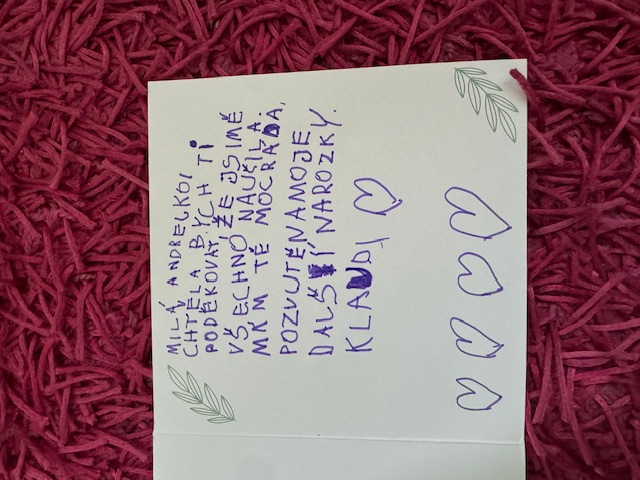 MILÁ ANDREJKO!
CHTĚLA BYCH TI
PODĚKOVAT
VŠECHNO, ŽE JSI MĚ
NAUČILA.
MÁM TĚ MOC RÁDA,
POZVU TĚ NA MOJE
DALŠÍ NAROZKY.
KLAUDI